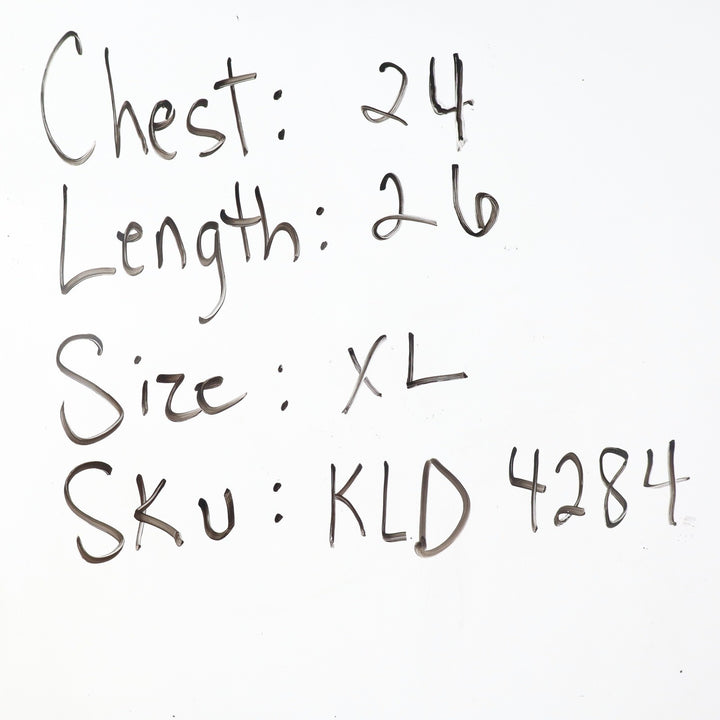 Chest: 24
Length: 26
Size: XL
SKU: KLD 4284